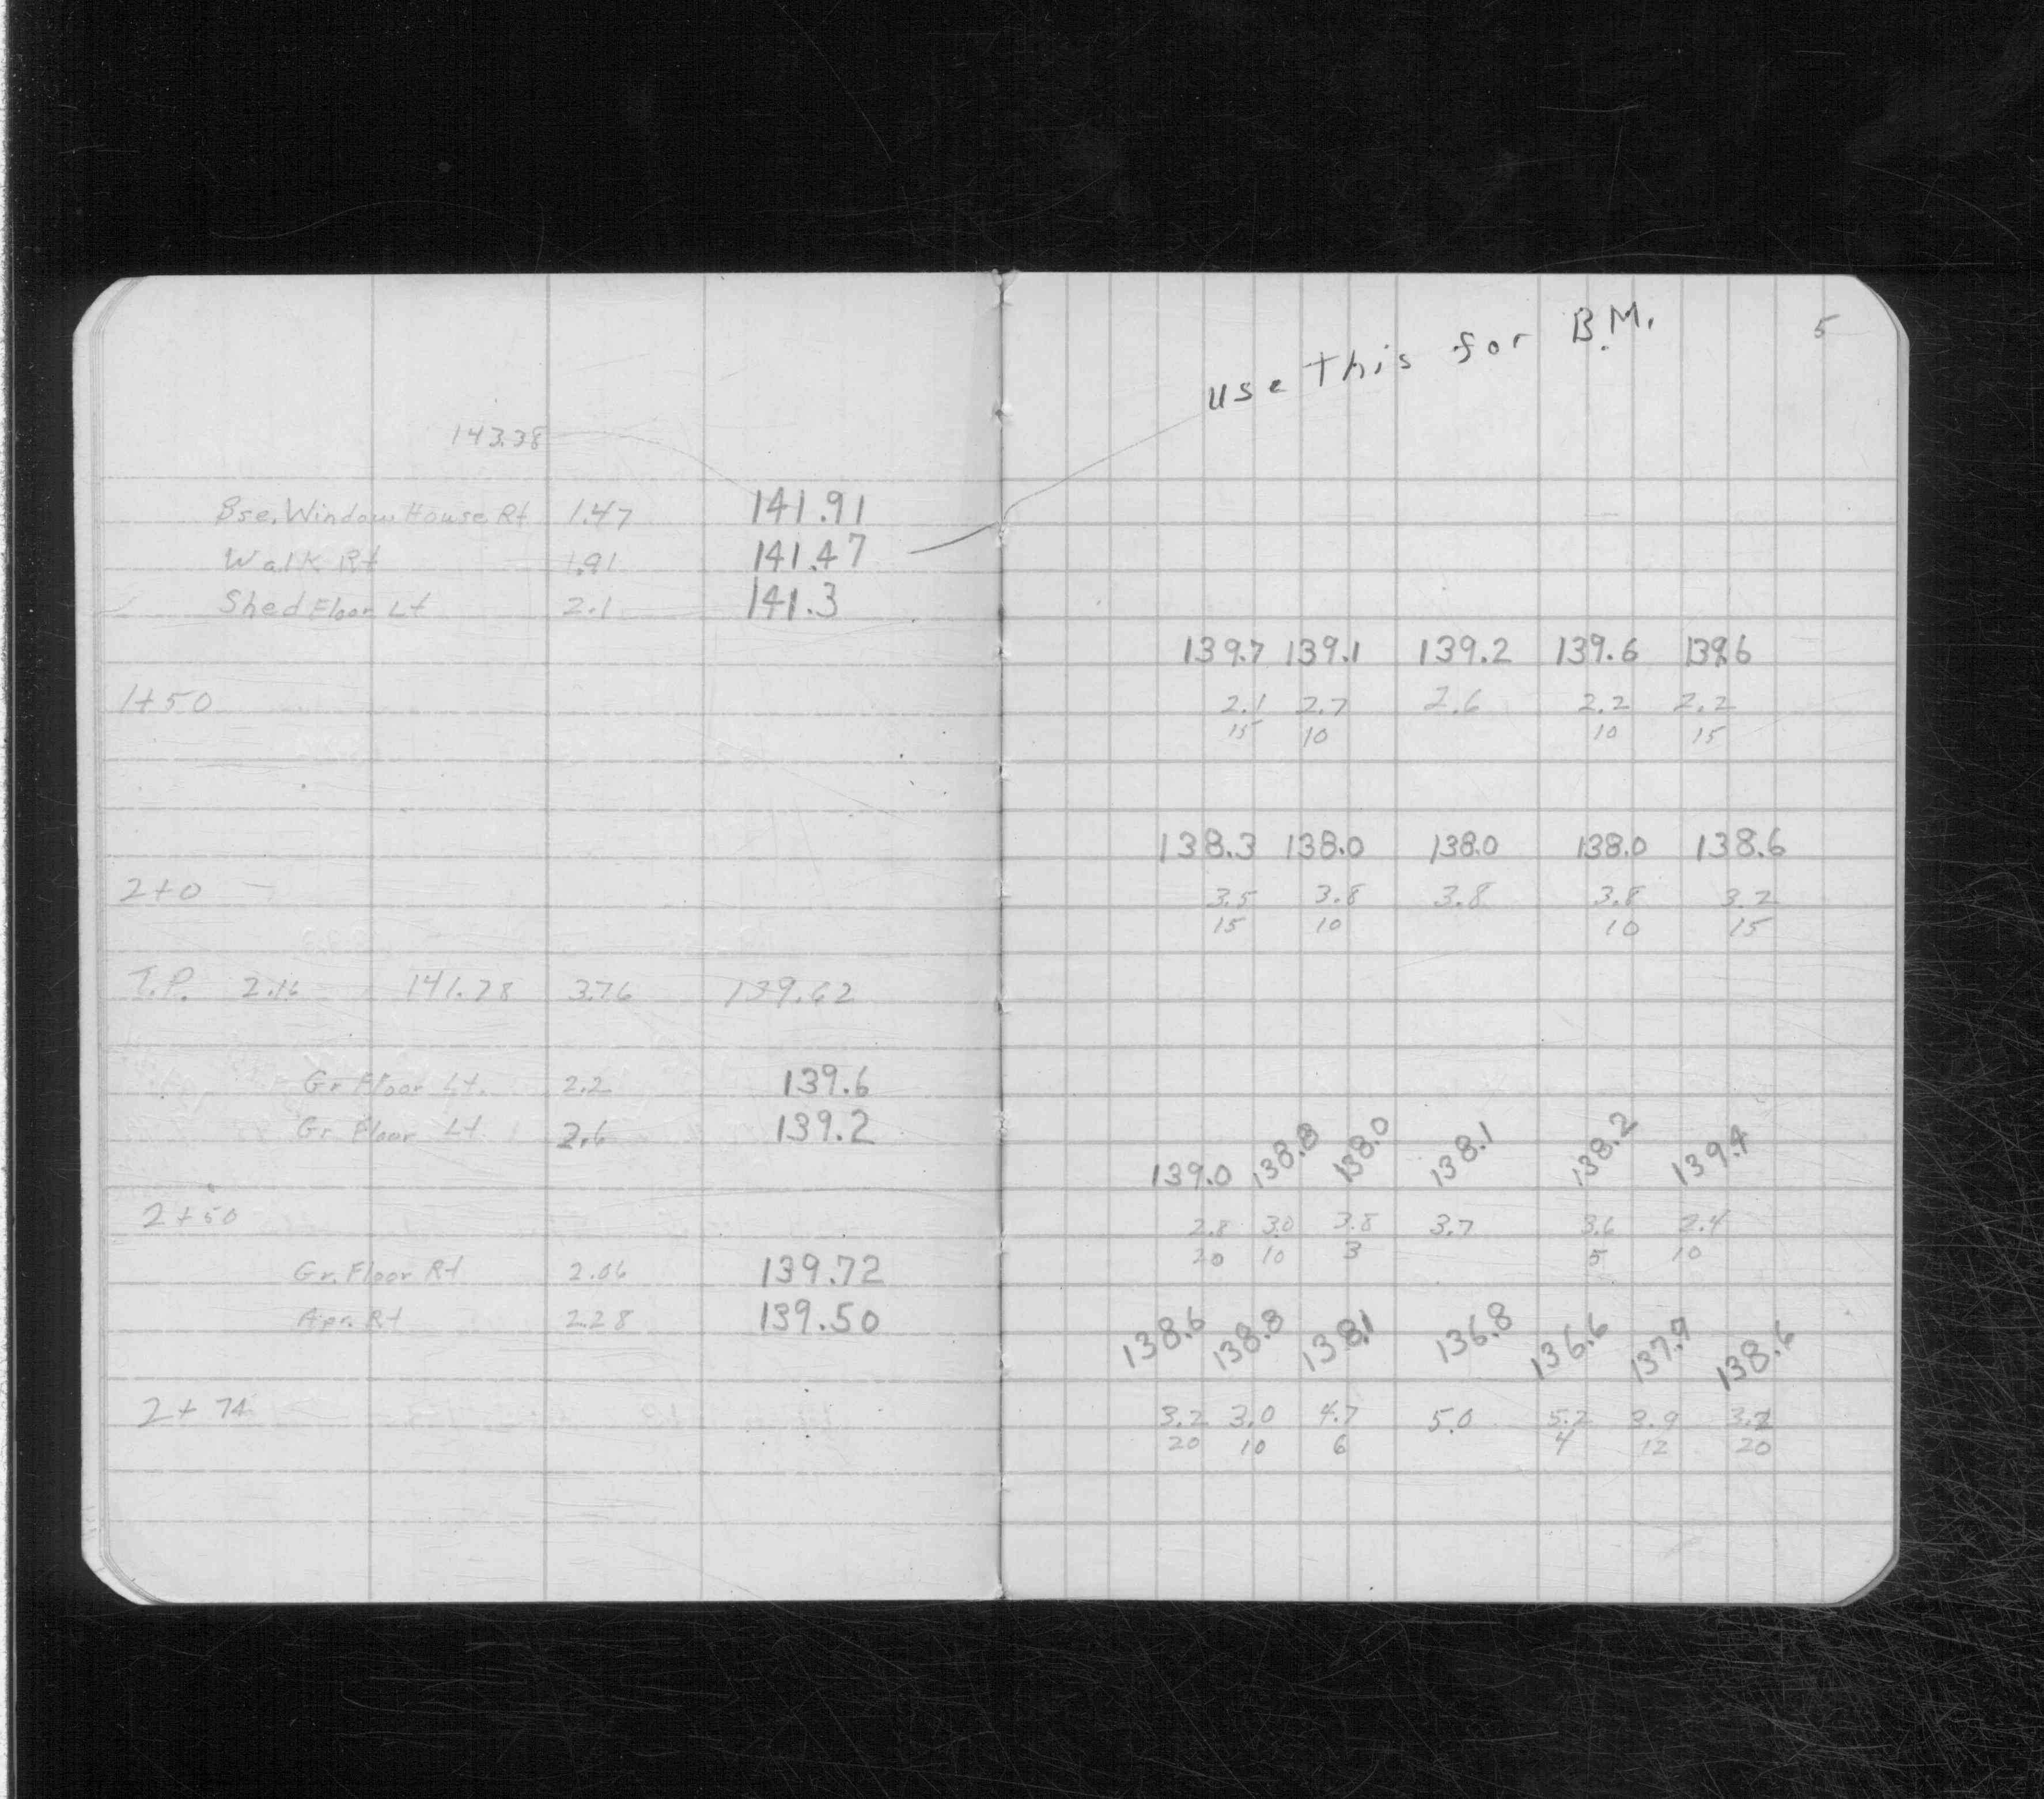 143.38
Bse. Window House Rt 1.47 141.91
Walk Rt 1.91 141.47
Shed Floor Lt 2.1 141.3
1+50
2+0
T.P. 2.16 141.78 3.76 139.62
Gr Floor Lt. 2.2 139.6
Gr Floor Lt 2.6 139.2
2+50
Gr. Floor Rt 2.06 139.72
Apr. Rt 2.28 139.50
2+74
5
use this for B.M.
139.7 139.1 139.2 139.6 139.6
2.1 2.7 2.6 2.2 2.2
15 10 10 15
138.3 138.0 138.0 138.0 138.6
3.5 3.8 3.8 3.8 3.2
15 10 10 15
139.0 138.8 138.0 138.1 138.2 139.4
2.8 3.0 3.8 3.7 3.6 2.4
20 10 3 5 10
138.6 138.8 138.1 136.8 136.6 137.9 138.6
3.2 3.0 4.7 5.0 5.2 3.9 3.2
20 10 6 4 12 20